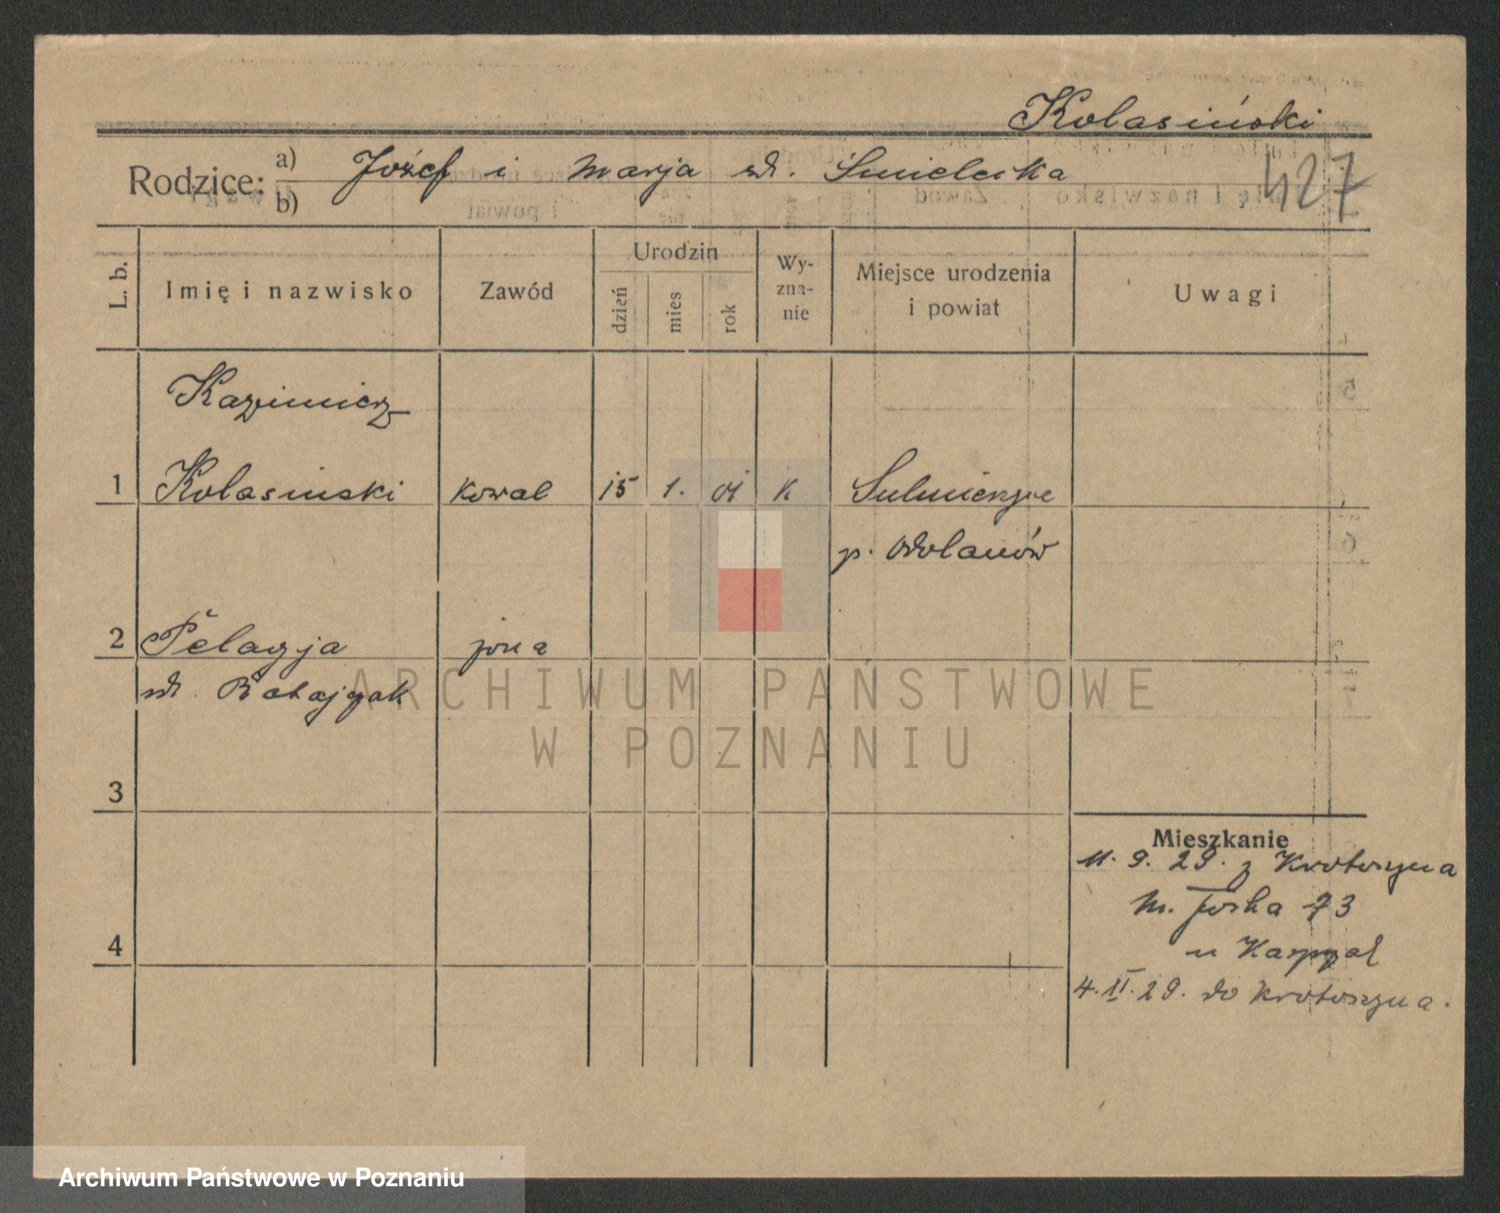 Kolasiński
Rodzice: a) Józef i Marja zd. Śmielecka
b)
427
L. b.
Imię i nazwisko
Zawód
Urodzin
dzień
mies
rok
Wy-
zna-
nie
Miejsce urodzenia
i powiat
Uwagi
Kazimierz
1 Kolasinski kowal 15 1. 01 K Sulmierzyce
p. Odolanów
2 Pelagja żona
zd. Ratajczak
3
4
Mieszkanie
11. 9. 29. z Krotoszyna
M. Focha 73
u Karpzał
4. II. 29. do Krotoszyna.
ARCHIWUM PAŃSTWOWE
W POZNANIU
Archiwum Państwowe w Poznaniu